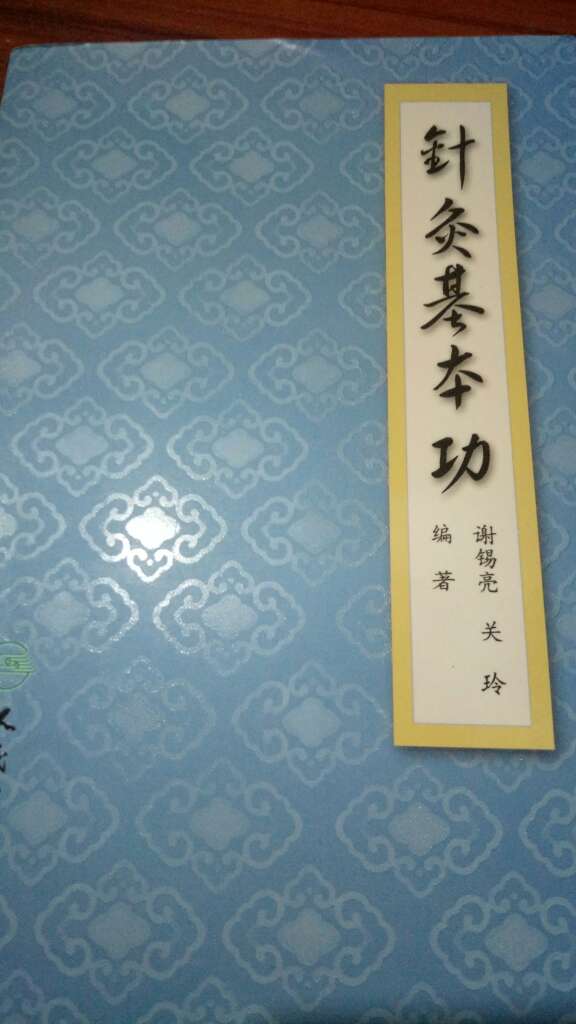 針灸基本功
谢锡亮 关 玲
编 著